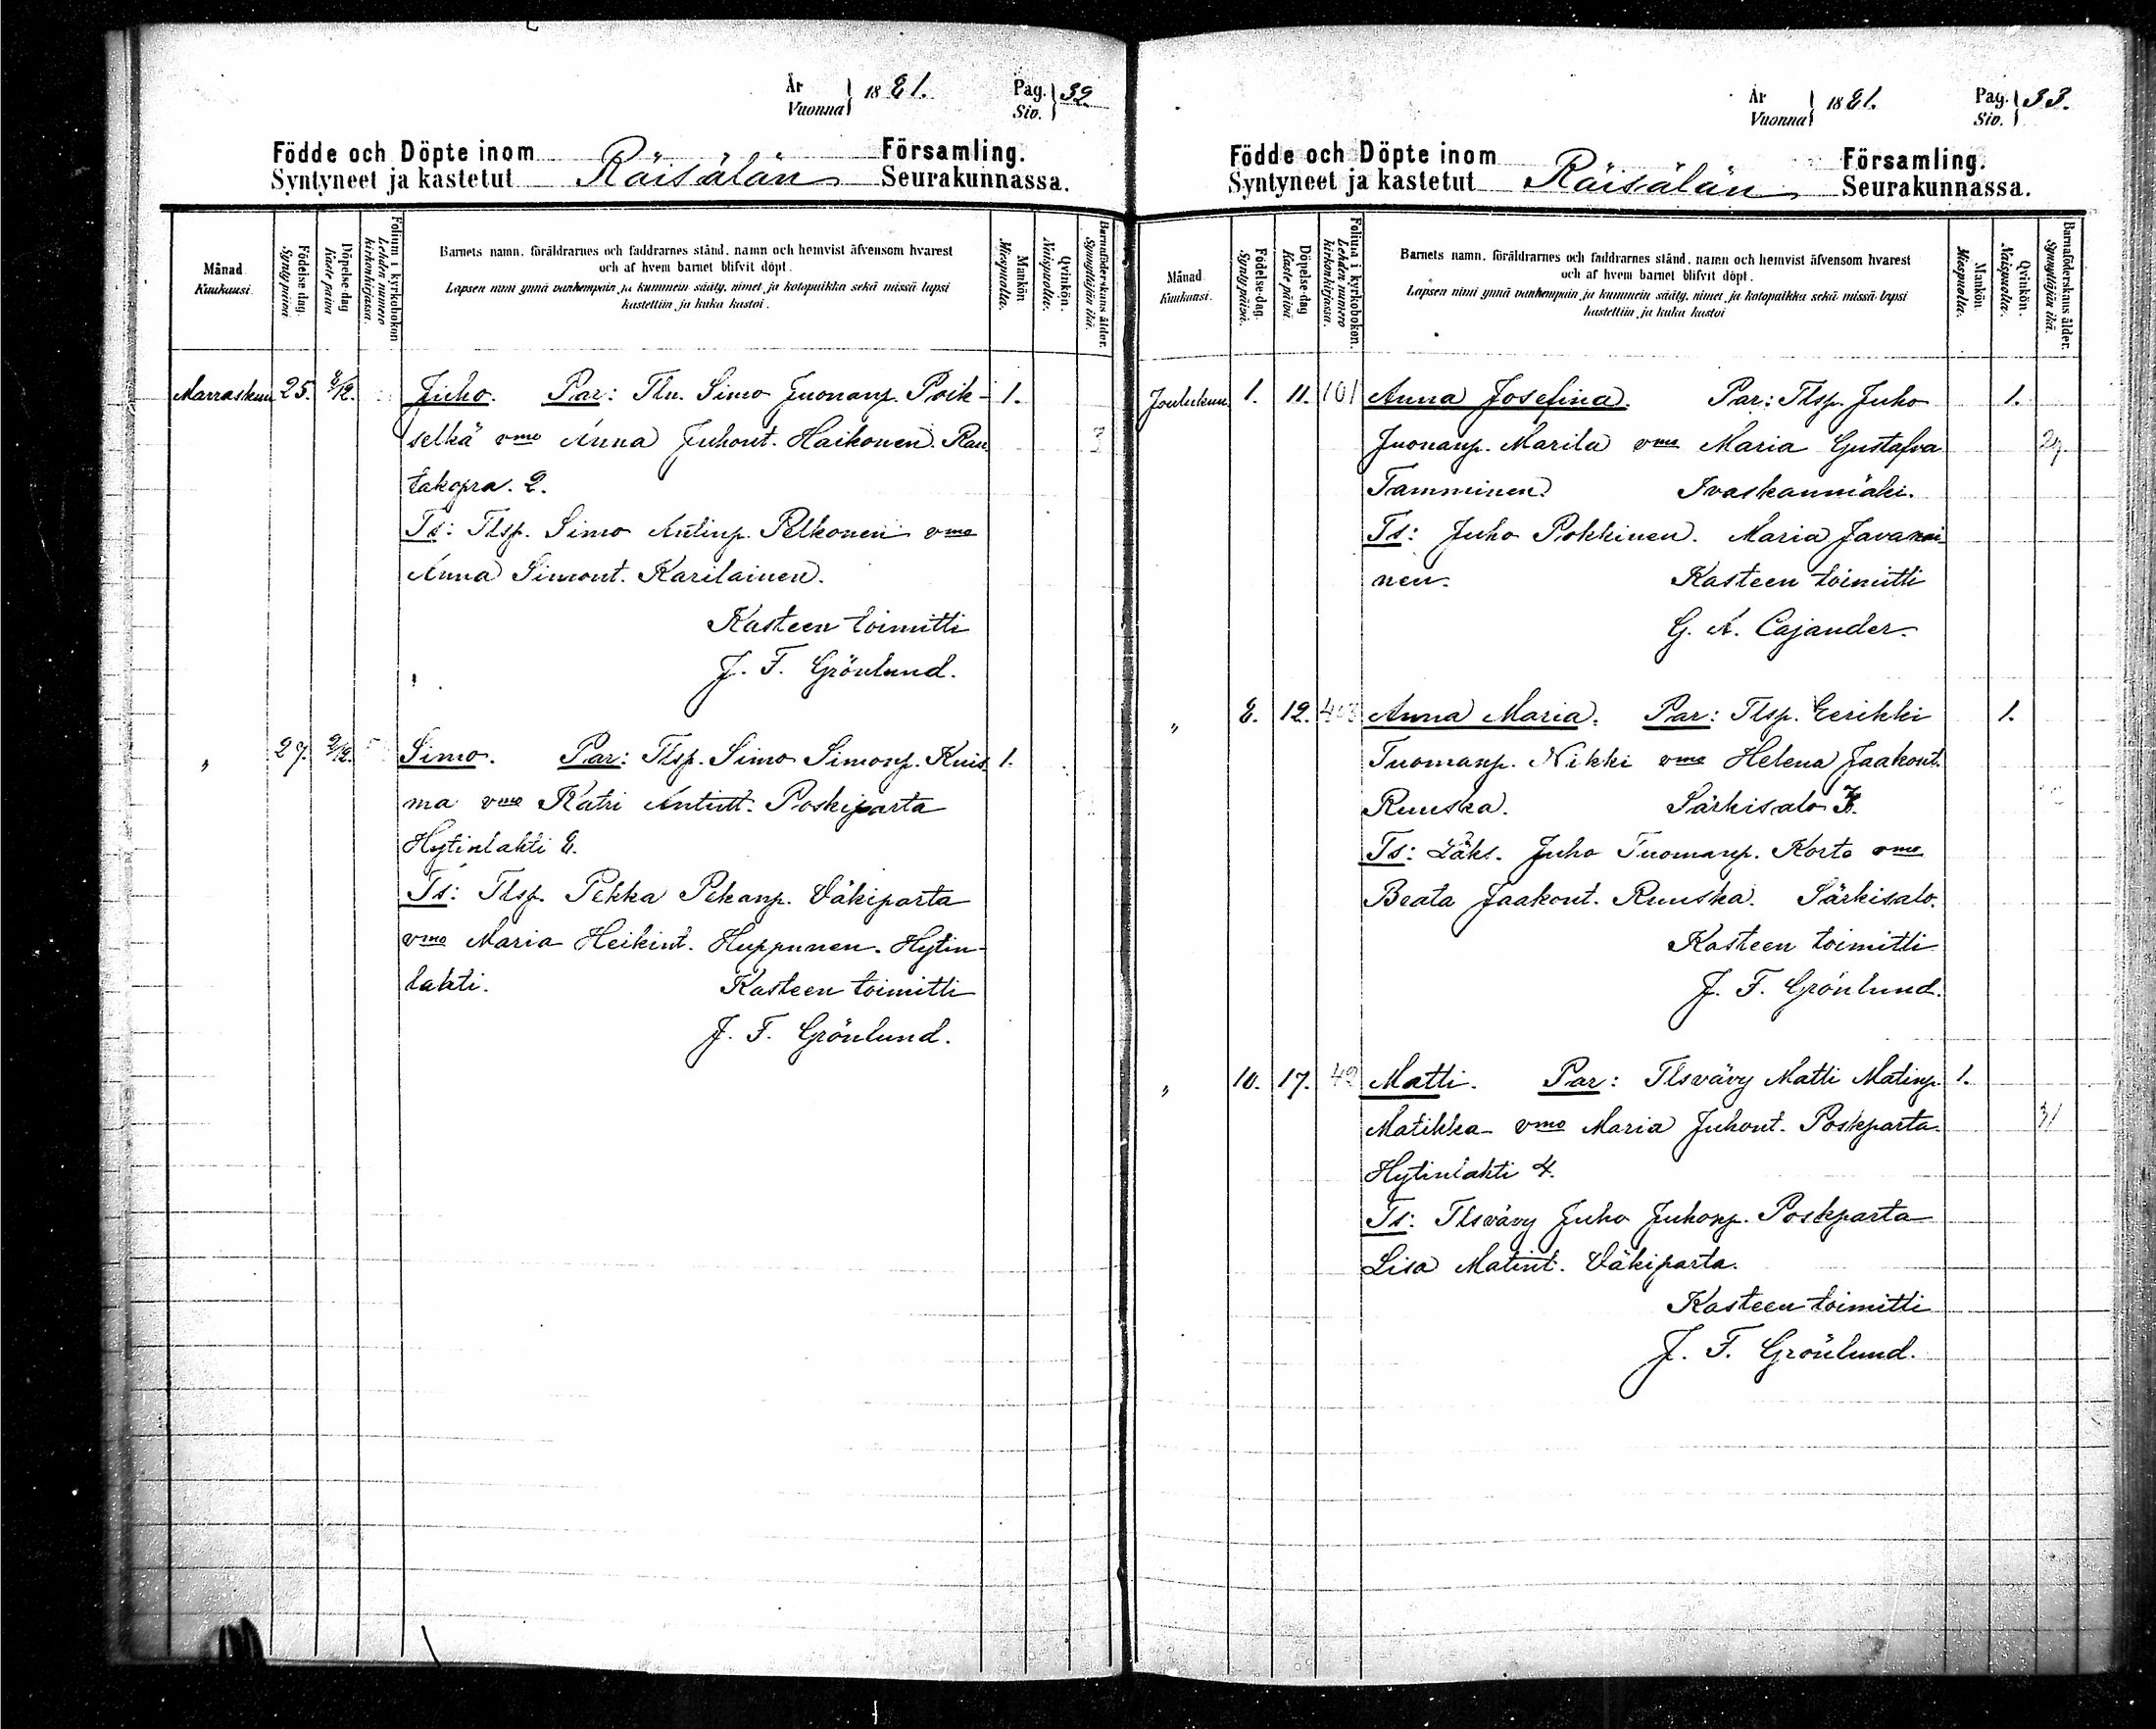 År
Vuonna } 1881. Pag.
Siv. } 32
Födde och Döpte inom Räisälän Församling.
Syntyneet ja kastetut Seurakunnassa.
Månad
Kuukausi.
Födelse-dag.
Syntypäivä
Döpelse-dag
Kaste päivä
Folium i kyrkobokon
Lehden numero
kirkonkirjassa.
Barnets namn, föräldrarnes och faddrarnes stånd, namn och hemvist äfvensom hvarest
och af hvem barnet blifvit döpt.
Lapsen nimi ynnä vanhempain ja kummein sääty, nimet ja kotopaikka sekä missä lapsi
kastettiin ja kuka kastoi.
Mankön
Miespuolta.
Qvinkön.
Naispuolta.
Barnaföderskans ålder.
Synnyttäjän ikä.
Marraskuu 25. 8/12. Juho. Par: Tln. Simo Juonanp. Poik- 1.
selkä vmo Anna Juhont. Haikonen. Rau-
takopra. 2.
Ts: Tlsp. Simo Antinp. Pelkonen vmo
Anna Simont. Karilainen.
Kasteen toimitti
J. F. Grönlund.
" 27. 9/12. Simo. Par: Tlsp. Simo Simonp. Kuis- 1.
ma vmo Katri Antint. Poskiparta
Hytinlahti 8.
Ts: Tlsp. Pekka Pekanp. Väkiparta
vmo Maria Heikint. Huppunen. Hytin-
lahti. Kasteen toimitti
J. F. Grönlund.
År
Vuonna } 1881. Pag.
Siv. } 33.
Födde och Döpte inom Räisälän Församling.
Syntyneet ja kastetut Seurakunnassa.
Månad
Kuukausi.
Födelse-dag.
Syntypäivä.
Döpelse-dag
Kaste päivä.
Folium i kyrkobokon.
Lehden numero
kirkonkirjassa.
Barnets namn, föräldrarnes och faddrarnes stånd, namn och hemvist äfvensom hvarest
och af hvem barnet blifvit döpt.
Lapsen nimi ynnä vanhempain ja kummein sääty, nimet ja kotopaikka sekä missä lapsi
kastettiin ja kuka kastoi
Mankön.
Miespuolta.
Qvinkön.
Naispuolta.
Barnaföderskans ålder.
Synnyttäjän ikä.
Joulukuu. 1. 11. 101 Anna Josefina. Par: Tlsp. Juho 1.
Juonanp. Marila vmo Maria Gustafva 29.
Tamminen. Ivaskanmäki.
Ts: Juho Pokkinen. Maria Javanai-
nen. Kasteen toimitti
G. A. Cajander.
" 8. 12. 403 Anna Maria. Par: Tlsp. Eerikki 1.
Tuomanp. Nikki vmo Helena Jaakont.
Ruuska. Särkisalo
Ts: Läks. Juho Tuomanp. Korte vmo
Beata Jaakont. Ruuska. Särkisalo.
Kasteen toimitti
J. F. Grönlund.
" 10. 17. 42 Matti. Par: Tlsvävy Matti Matinp. 1.
Matikka vmo Maria Juhont. Poskparta. 31
Hytinlahti 4.
Ts: Tlsvävy Juho Juhonp. Poskparta
Lisa Matint. Väkiparta.
Kasteen toimitti
J. F. Grönlund.